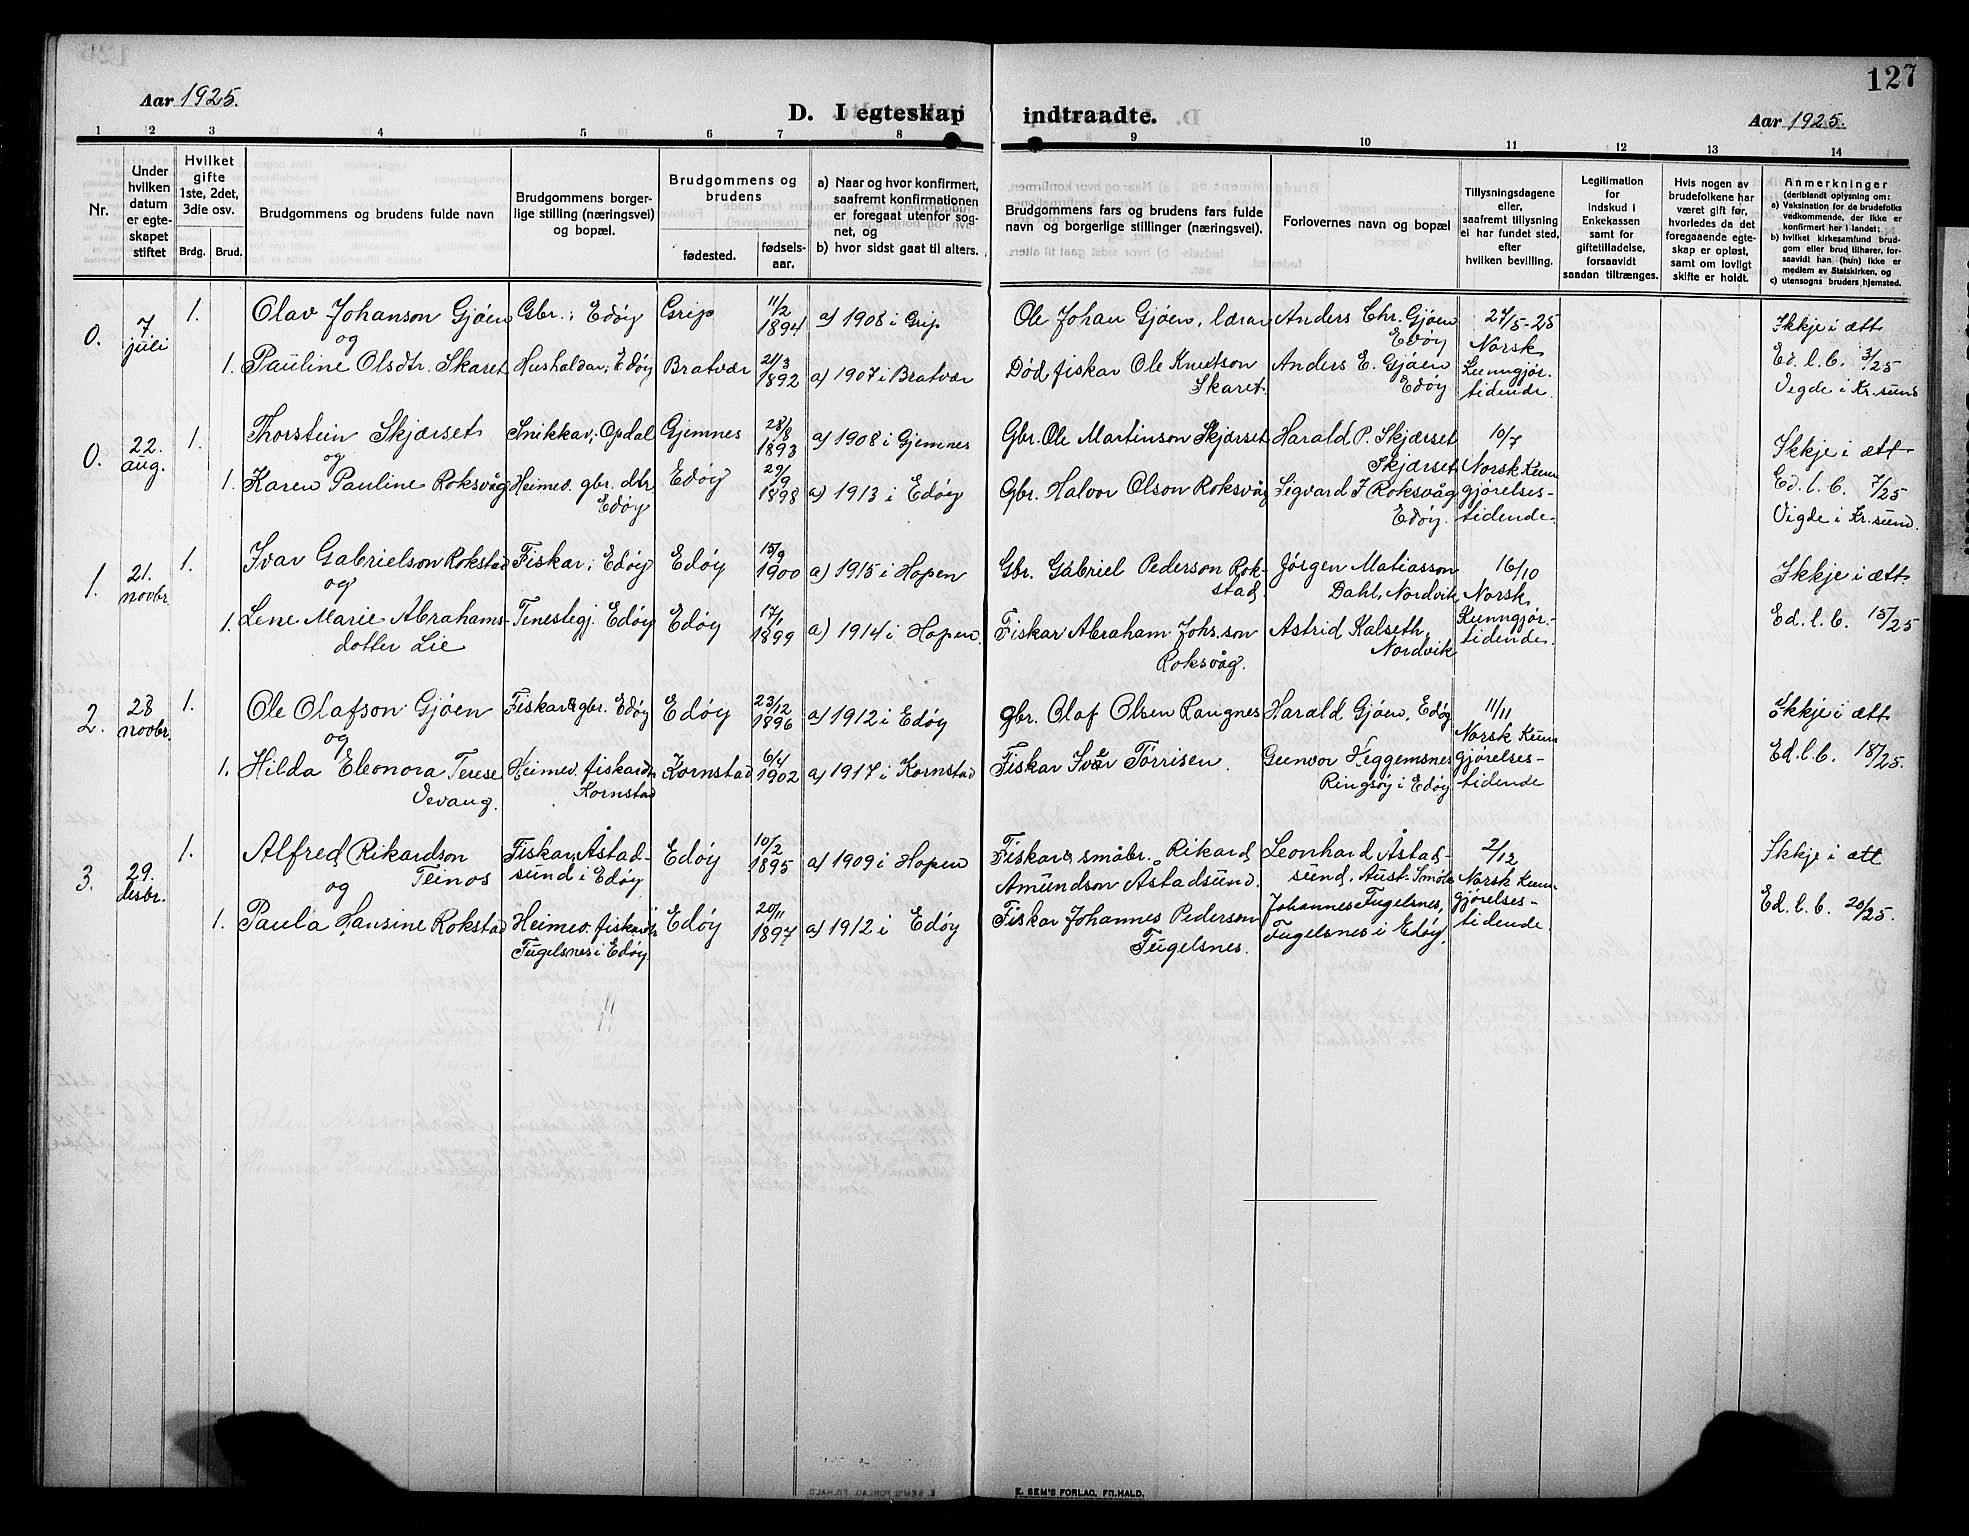 127
Aar 1925.
D. I egteskap indtraadte.
Aar 1925.
1 2 3 4 5 6 7 8 9 10 11 12 13 14
Nr.
Under hvilken datum er egteskapet stiftet
Hvilket gifte 1ste, 2det, 3die osv.
Brdg. Brud.
Brudgommens og brudens fulde navn
Brudgommens borgerlige stilling (næringsvei) og bopæl.
Brudgommens og brudens
fødested.
fødselsaar.
a) Naar og hvor konfirmert, saafremt konfirmationen er foregaat utenfor sognet, og
b) hvor sidst gaat til alters.
Brudgommens fars og brudens fars fulde navn og borgerlige stillinger (næringsvei).
Forlovernes navn og bopæl
Tillysningsdagene eller, saafremt tillysning ei har fundet sted, efter hvilken bevilling.
Legitimation for Indskud i Enkekassen samt for giftetilladelse, forsaavidt saadan tiltrænges.
Hvis nogen av brudefolkene har været gift før, hvorledes da det foregaaende egteskap er opløst, samt om lovligt skifte er holdt.
Anmerkninger
(deriblandt oplysning om:
a) Vaksination for de brudefolks vedkommende, der ikke er konfirmert her i landet;
b) hvilket kirkesamfund brudgom eller brud tilhører, forsaavidt han (hun) ikke er medlem av Statskirken, og
c) utensogns bruders hjemsted.
0. 7 juli 1. Olav Johanson Gjøen Gbr.; Edøy Grip 11/2 1894 a) 1908 i Grip Ole Johan Gjøen, lærar Anders Chr. Gjøen Edøy 27/5-25 Norsk Kunngjør. tidende Ikkje i ætt
og
1. Pauline Olsdtr. Skaret Husholdar, Edøy Bratvær 21/3 1892 a) 1907 i Bratvær Død fiskar Ole Knutson Skaret. Anders E. Gjøen Edøy Ed. l. b. 3/25 Vigde i Kr.sund
0. 22. aug. 1. Thorstein Skjærset Snikkar; Opdal Gjemnes 28/8 1893 a) 1908 i Gjemnes Gbr. Ole Martinson Skjærset Harald P. Skjærset Skjærset 10/7 Norsk Kunngjørelsestidende. Ikkje i ætt
og
1. Karen Pauline Roksvåg Heimev. gbr. dtr Edøy Edøy 29/9 1898 a) 1913 i Edøy Gbr. Halvor Olson Roksvåg Sigvard J Roksvåg Edøy. Ed. l. b. 7/25 Vigde i Kr.sund.
1. 21. novbr 1. Ivar Gabrielson Rokstad Fiskar; Edøy Edøy 15/9 1900 a) 1915 i Hopen Gbr. Gabriel Pederson Rokstad. Jørgen Matiasson Dahl, Nordvik 16/10 Norsk Kunngjør. tidende. Ikkje i ætt
og
1. Lene Marie Abrahamsdotter Lie Tenestegj. Edøy Edøy 17/1 1899 a) 1914 i Hopen. Fiskar Abraham Johs.son Roksvåg. Astrid Kalseth, Nordvik Ed. l. b. 15/25
2. 28 novbr. 1. Ole Olafson Gjøen Fiskar & gbr. Edøy Edøy 23/12 1896 a) 1912 i Edøy gbr. Olaf Olsen Rangnes Harald Gjøen, Edøy 11/11 Norsk Kunngjørelsestidende Ikkje i ætt
og
1. Hilda Eleonora Terese Vevang. Heimev. fiskardtr Kornstad Kornstad 6/4 1902 a) 1917 i Kornstad Fiskar Iver Tørrisen. Gunvor Heggemsnes Ringsøy i Edøy Ed. l. b. 18/25.
3. 29. desbr. 1. Alfred Rikardson Teinos Fiskar, Åstadsund i Edøy Edøy 10/2 1895 a) 1909 i Hopen Fiskar & småbr. Rikard Amundson Astadsund. Leonhard Åstadsund, Aust-Smøla 2/12 Norsk Kunngjørelsestidende. Ikkje i ætt
og
1. Paula Hansine Rokstad Heimev. fiskardtr Fugelsnes i Edøy Edøy 20/11 1897 a) 1912 i Edøy Fiskar Johannes Pederson Fugelsnes. Johannes Fugelsnes, Fugelsnes i Edøy. Ed. l. b. 20/25.
E. SEM'S FORLAG, FR.HALD.